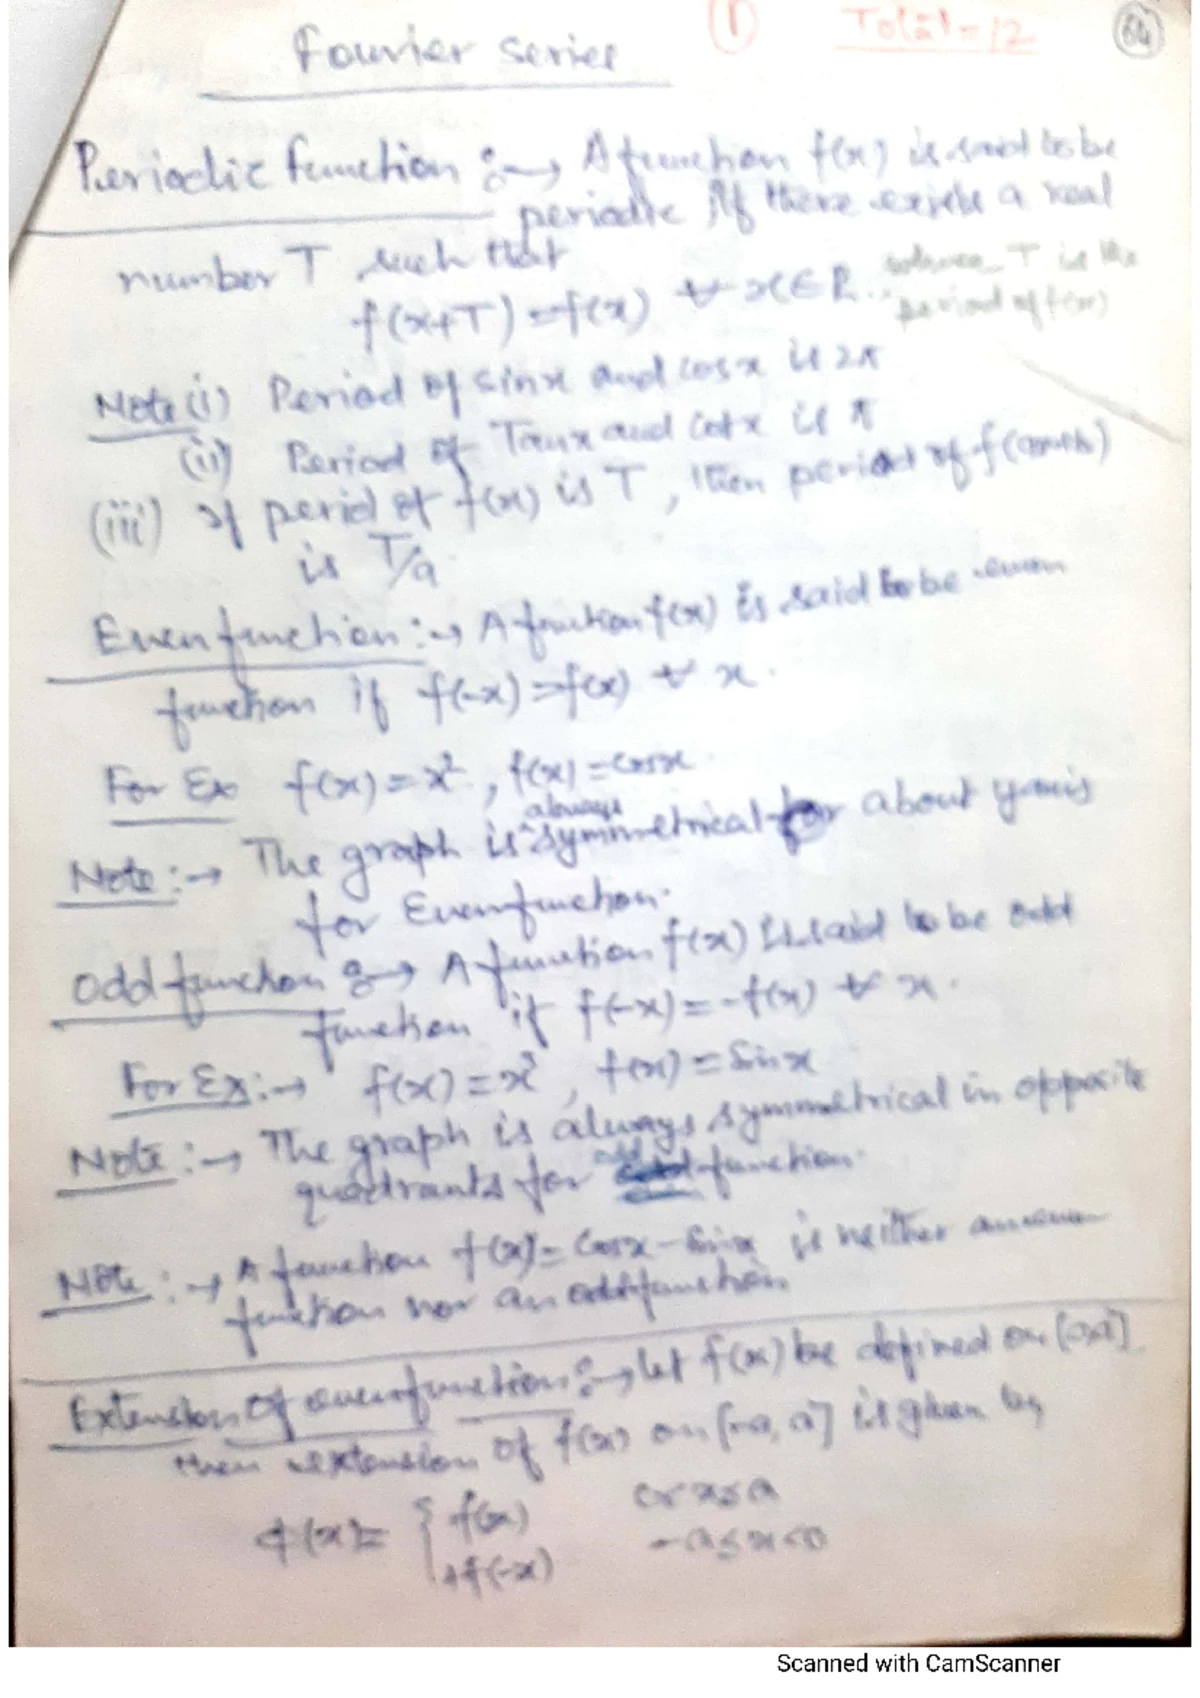 Fourier series
① Total = 12
64
Periodic function :→ A function f(x) is said to be
periodic if there exists a real
number T such that
f(x+T) = f(x) ∀ x∈R. where T is the
period of f(x)
Note (i) Period of sinx and cosx is 2π
(ii) Period of Tanx and cotx is π
(iii) If period of f(x) is T, then period of f(ax+b)
is T/a
Even function :→ A function f(x) is said to be even
function if f(-x) = f(x) ∀ x.
For Ex f(x) = x², f(x) = cosx
always
Note :→ The graph is symmetrical about y axis
for Even function.
odd function :→ A function f(x) is said to be odd
function if f(-x) = -f(x) ∀ x.
For Ex :→ f(x) = x³, f(x) = sinx
Note :→ The graph is always symmetrical in opposite
quadrants for odd function.
Note :→ A function f(x) = cosx - sinx is neither an even
function nor an odd function.
Extension of even function :→ let f(x) be defined on [0,a]
then extension of f(x) on [-a, a] is given by
φ(x) = { f(x) 0≤x≤a
+f(-x) -a≤x<0
Scanned with CamScanner